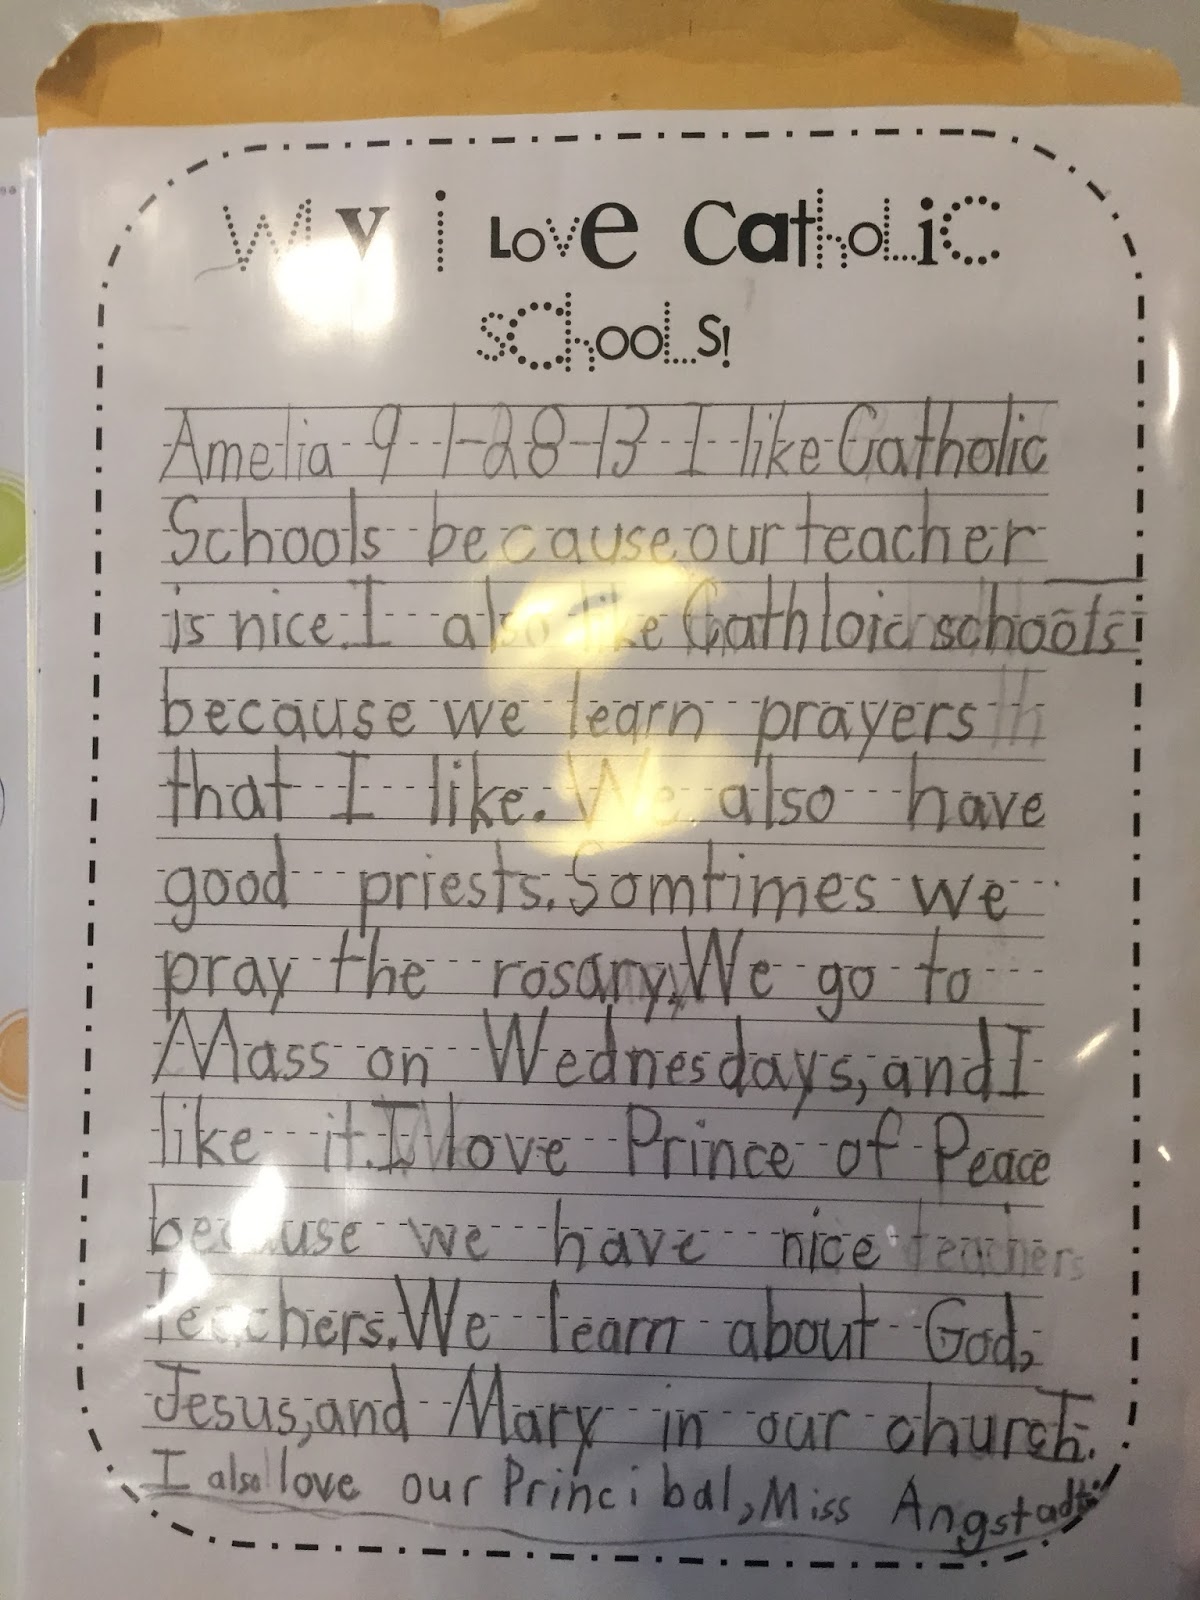 Why I Love Catholic
Schools!
Amelia 9 1-28-13 I like Catholic
Schools because our teacher
is nice. I also like Cathloic schools
because we learn prayers
that I like. We also have
good priests. Somtimes we
pray the rosary. We go to
Mass on Wednesdays, and I
like it. I love Prince of Peace
because we have nice teachers
teachers. We learn about God,
Jesus, and Mary in our church.
I also love our Princibal, Miss Angstadt